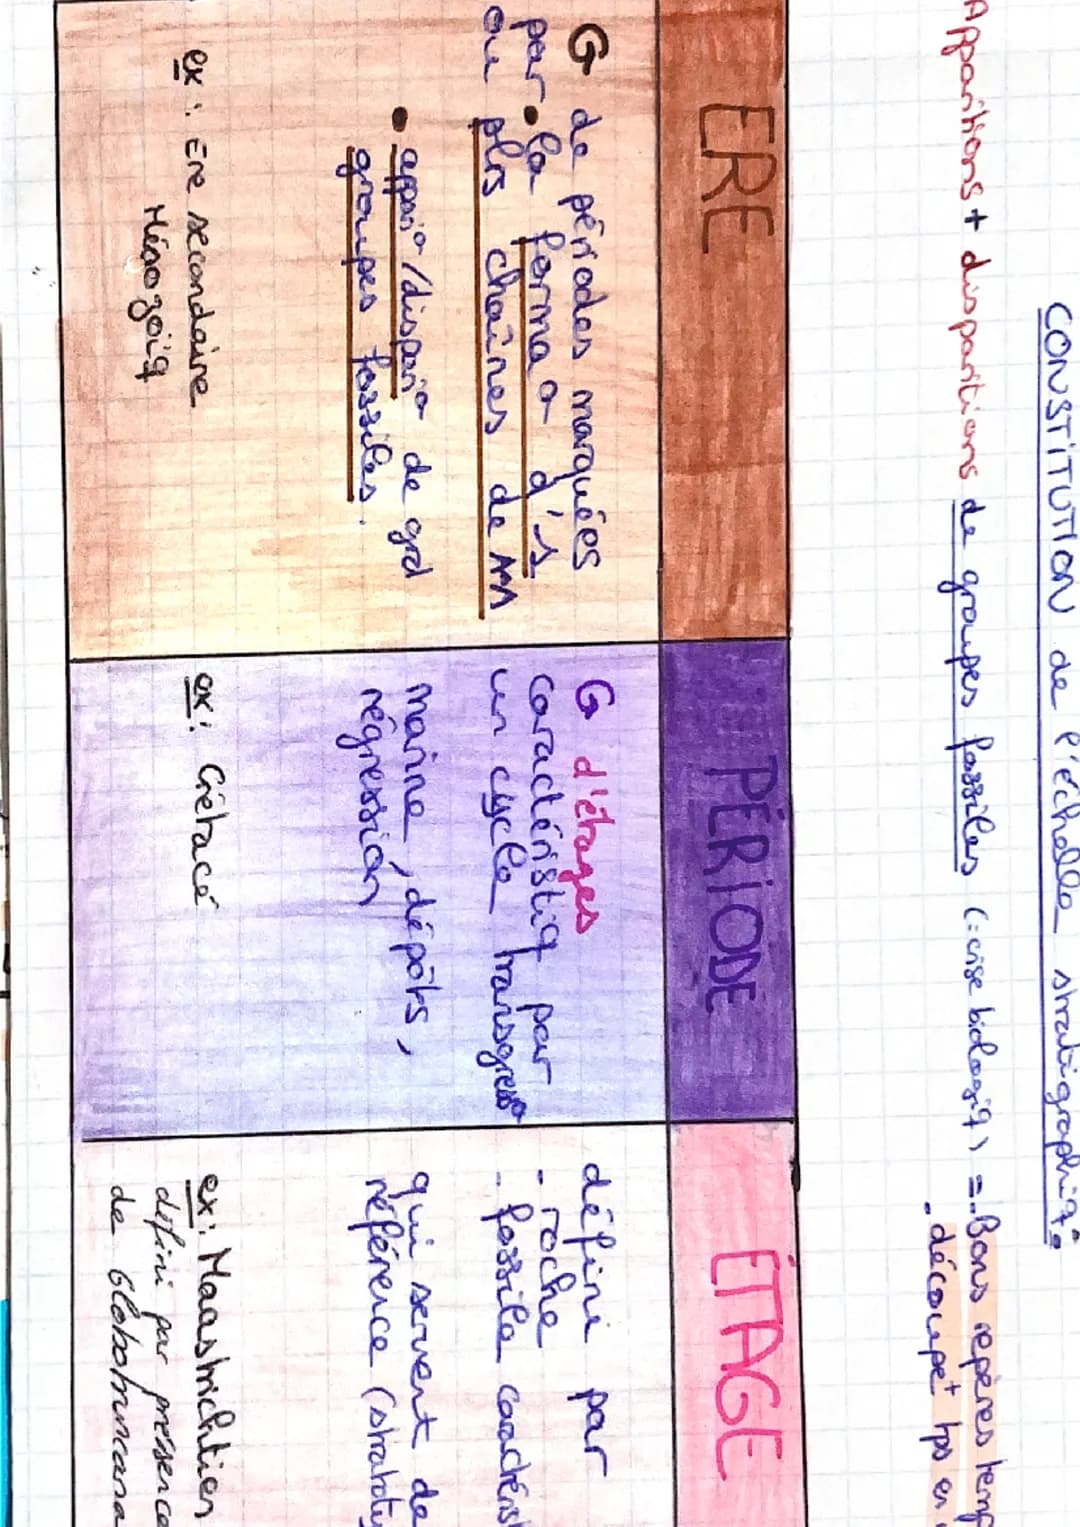 CONSTITUTION de l'échelle stratigraphiq.
Apparitions + disparitions de groupes fossiles (: crise biologiq) = - Bons repères
- découpe+ tps en
ERE
PÉRIODE
ÉTAGE
G de périodes marquées
par • la forma° d'1
ou plrs chaînes de
• appari°/dispari° de grd
groupes fossiles.
ex : Ere secondaire
Mésozoïq
G d'étages
caractéristiq par
un cycle transgress°
marine, dépôts,
régression
ex : Crétacé
défini par
- roche
- fossile
qui servent de
référence
ex : Maastrichtien
défini par présence
de